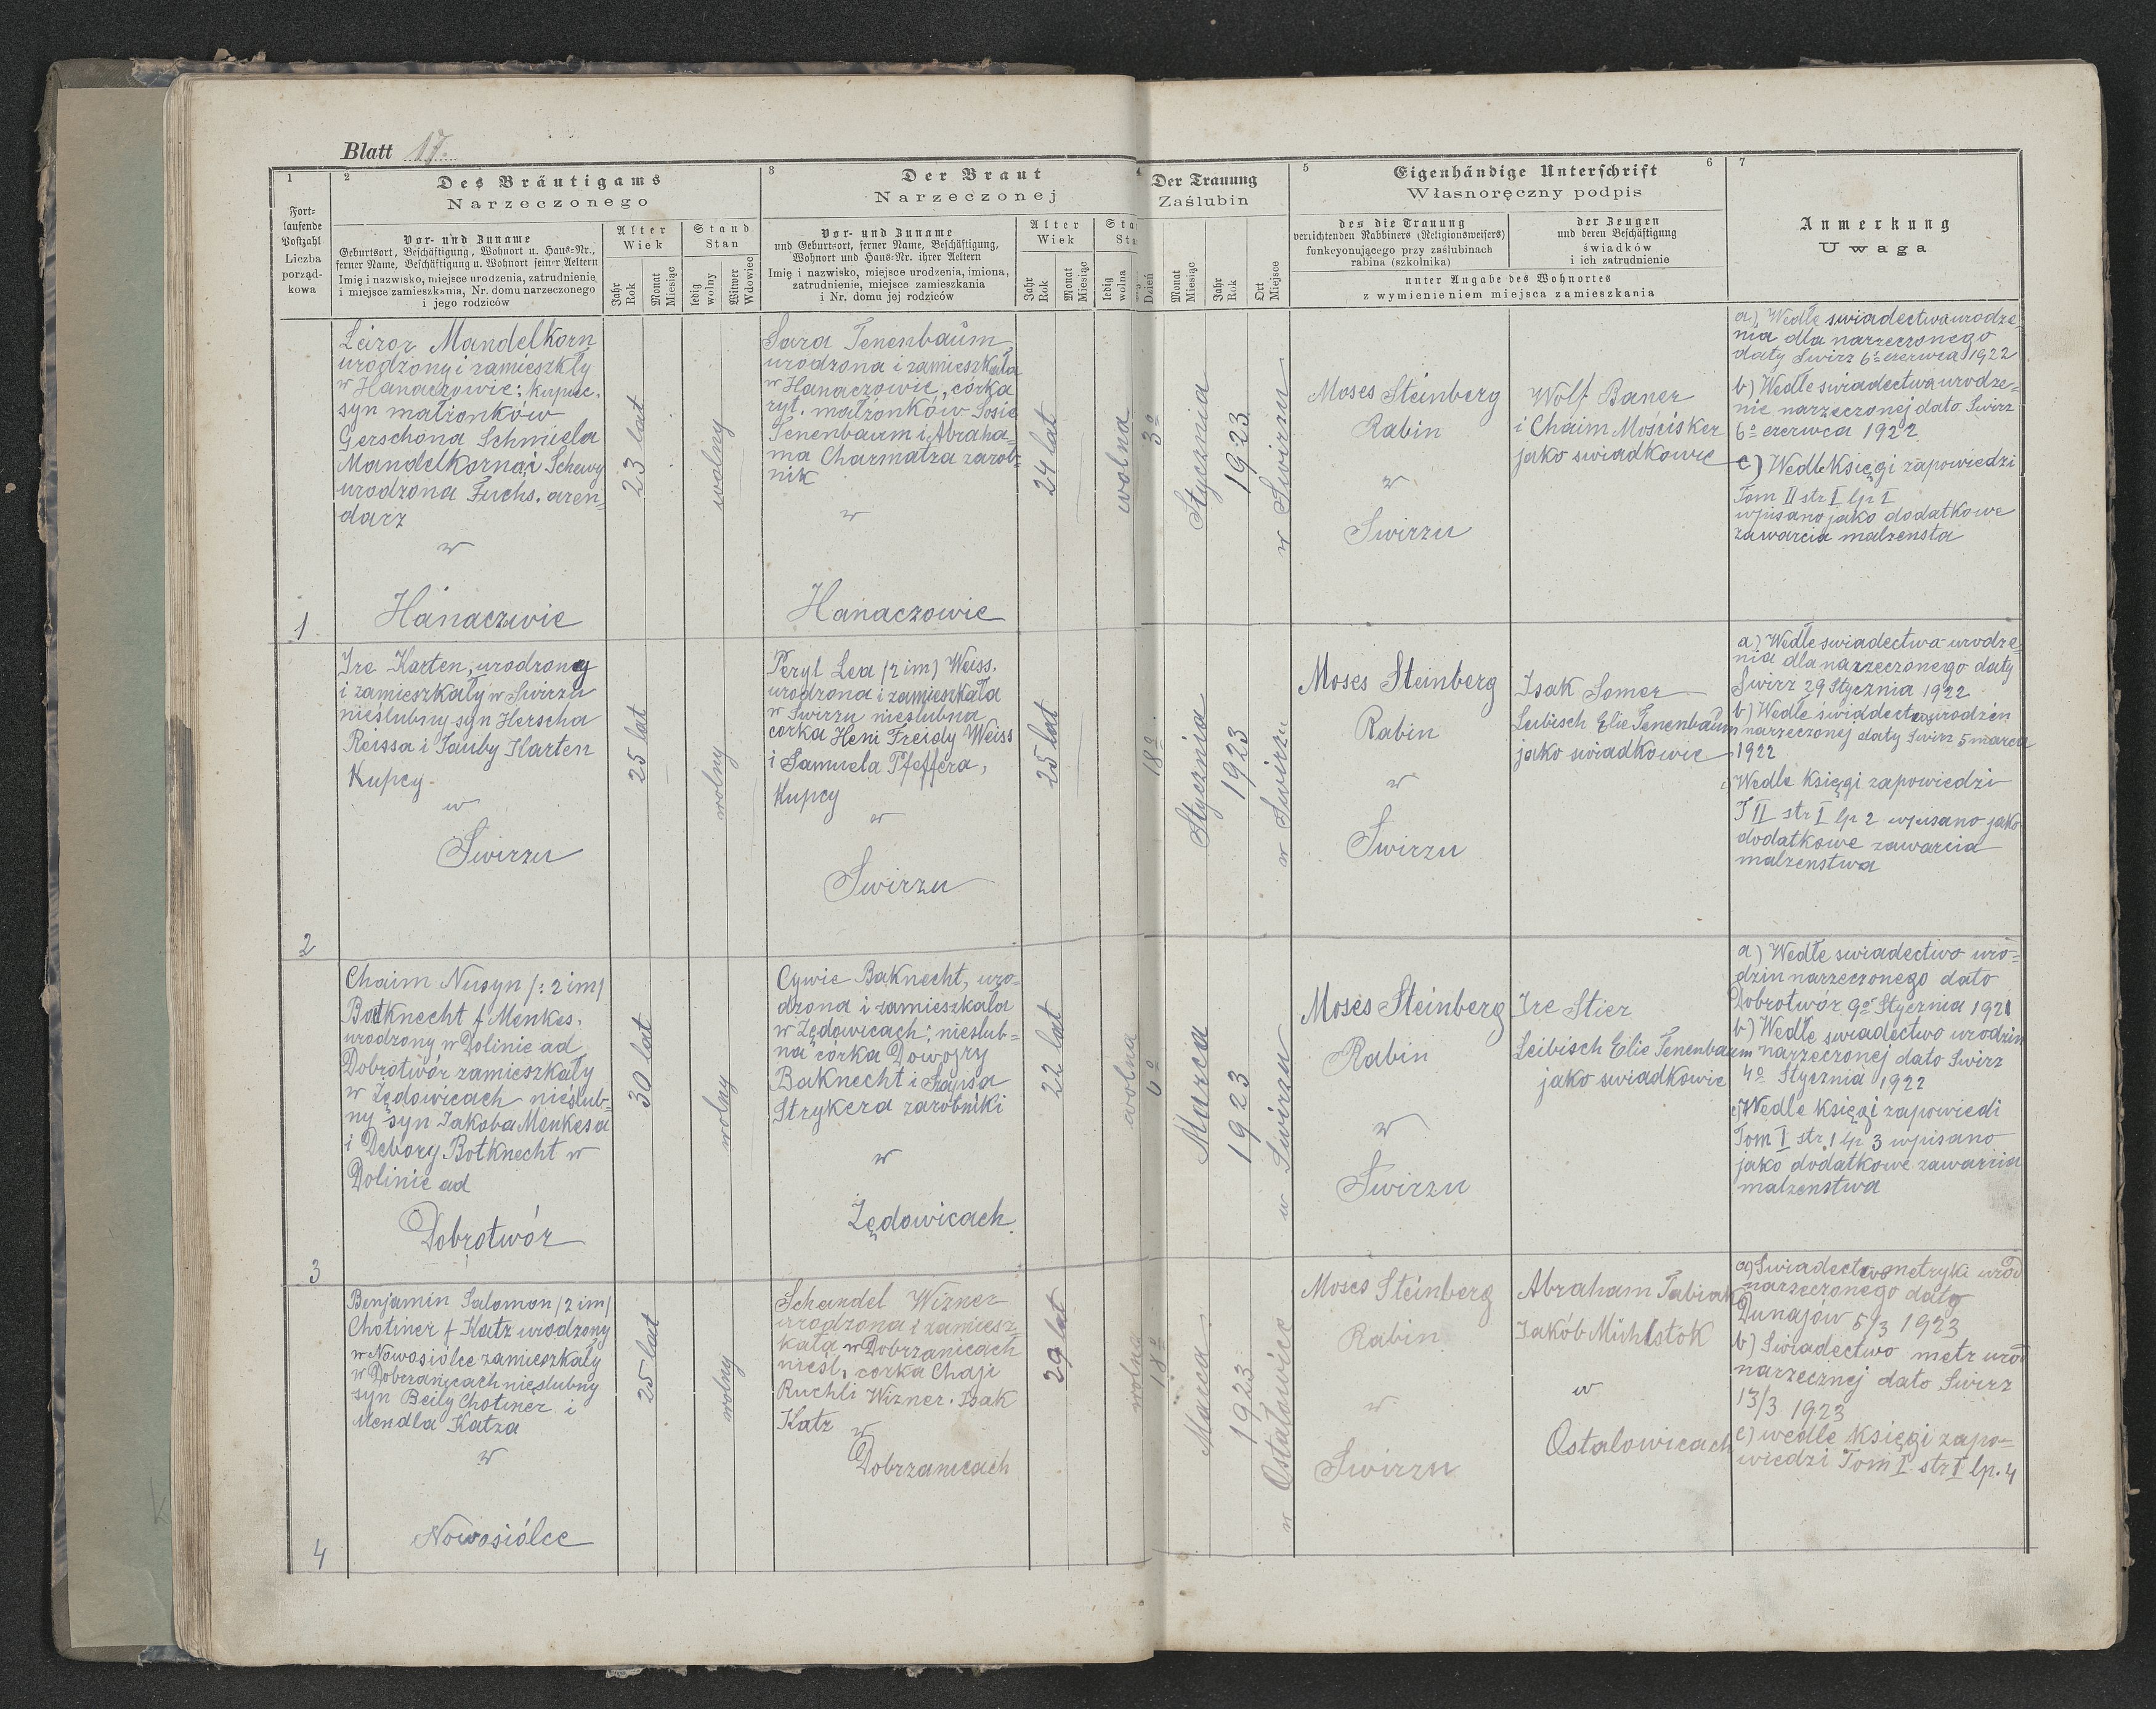 Blatt 17.
1
Fort-
laufende
Postzahl
Liczba
porząd-
kowa
2
Des Bräutigams
Narzeczonego
Vor- und Zuname
Geburtsort, Beschäftigung, Wohnort u. Haus-Nr.,
ferner Name, Beschäftigung u. Wohnort seiner Aeltern
Imię i nazwisko, miejsce urodzenia, zatrudnienie
i miejsce zamieszkania, Nr. domu narzeczonego
i jego rodziców
Alter
Wiek
Jahr
Rok
Monat
Miesiąc
Stand
Stan
ledig
wolny
Witwer
Wdowiec
3
Der Braut
Narzeczonej
Vor- und Zuname
und Geburtsort, ferner Name, Beschäftigung,
Wohnort und Haus-Nr. ihrer Aeltern
Imię i nazwisko, miejsce urodzenia, imiona,
zatrudnienie, miejsce zamieszkania
i Nr. domu jej rodziców
Alter
Wiek
Jahr
Rok
Monat
Miesiąc
ledig
wolna
4
Der Trauung
Zaślubin
Dzień
Monat
Miesiąc
Jahr
Rok
Ort
Miejsce
5
Eigenhändige Unterschrift
6
Własnoręczny podpis
des die Trauung
verrichtenden Rabbiners (Religionsweisers)
funkcyonującego przy zaślubinach
rabina (szkolnika)
der Zeugen
und deren Beschäftigung
świadków
i ich zatrudnienie
unter Angabe des Wohnortes
z wymienieniem miejsca zamieszkania
7
Anmerkung
Uwaga
1
Leizor Mandelkorn
urodzony i zamieszkły
w Hanaczowie; kupiec,
syn małżonków
Gerschona Schmiela
Mandelkorna i Schewy
urodzona Fuchs. aren=
darz
w
Hanaczwie
23 lat
wolny
Sara Tenenbaum
urodzona i zamieszkała
w Hanaczowie, córka
ryt. małżonków Sosie
Tenenbaum i Abraha=
ma Charmatza zarob=
nik
w
Hanaczowie
24 lat
wolna
3o
Stycznia
1923
w Swirzu
Moses Steinberg
Rabin
w
Swirzu
Wolf Baner
i Chaim Mościsker
jako swiadkowie
a) Wedle swiadectwa urodze=
nia dla narzeczonego
daty Swirz 6o czerwca 1922
b) Wedle swiadectwa urodze=
nie narzeczonej dato Swirz
6o czerwca 1922
c) Wedle Księgi zapowiedzi
Tom II str I lp I
wpisano jako dodatkowe
zawarcia malzensta
2
Ire Karten, urodzony
i zamieszkały w Swirzu
nieślubny syn Herscha
Reissa i Tauby Karten
Kupcy
w
Swirzu
25 lat
wolny
Peryl Lea (2 im) Weiss,
urodzona i zamieszkała
w Swirzu nieslubna
córka Heni Freidy Weiss
i Samuela Pfeffera,
Kupcy
w
Swirzu
25 lat
18o
Stycznia
1923
w Swirzu
Moses Steinberg
Rabin
w
Swirzu
Isak Somer
Leibisch Elie Tenenbaum
jako swiadkowie
a) Wedle swiadectwa urodze=
nia dla narzeczonego daty
Swirz 29 Stycznia 1922
b) Wedle świadectwa urodzin
narzeczonej daty Swirz 5 marca
1922
c) Wedle Księgi zapowiedzi
T II str I lp 2 wpisano jako
dodatkowe zawarcia
malzenstwa
3
Chaim Nusyn /:2 im/
Botknecht f Menkes,
urodzony w Dolinie ad
Dobrotwór zamieszkały
w Zędowicach nieślub=
ny syn Jakoba Menkesa
i Debory Botknecht w
Dolinie ad
Dobrotwór
30 lat
wolny
Cywie Baknecht, uro=
dzona i zamieszkala
w Zędowicach; nieslub=
na córka Dwojry
Baknecht i
Strykera zarobniki
w
Zędowicach
22 lat
wolna
6o
Marca
1923
w Swirzu
Moses Steinberg
Rabin
w
Swirzu
Ire Stier
Leibisch Elie Tenenbaum
jako swiadkowie
a) Wedle swiadectwo uro=
dzin narzeczonego dato
Dobrotwór 9o Stycznia 1921
b) Wedle swiadectwo urodzin
narzeczonej dato Swirz
4o Stycznia 1922
c) Wedle księgi zapowiedi
Tom I str. 1 lp 3 wpisano
jako dodatkowe zawarcia
malzenstwa
4
Benjamin Salomon /2 im/
Chotiner f Katz urodzony
w Nowosiólce zamieszkały
w Dobrzanicach nieslubny
syn Beily Chotiner i
Mendla Katza
w
Nowosiólce
25 lat
wolny
Scheindel Wizner
urodzona i zamiesz=
kała w Dobrzanicach
nieśl, corka Chaje
Ruchli Wizner. Isak
Katz w
Dobrzanicach
29 lat
wolna
18o
Marca
1923
w Ostałowice
Moses Steinberg
Rabin
w
Swirzu
Abraham Tabiak
Jakób Mühlstok
w
Ostalowicach
a) Swiadectwo metryki urod
narzeczonego dato
Dunajów 5/3 1923
b) Swiadectwo metr urod
narzecznej dato Swirz
13/3 1923
c) wedle księgi zapo=
wiedzi Tom I str I lp. 4